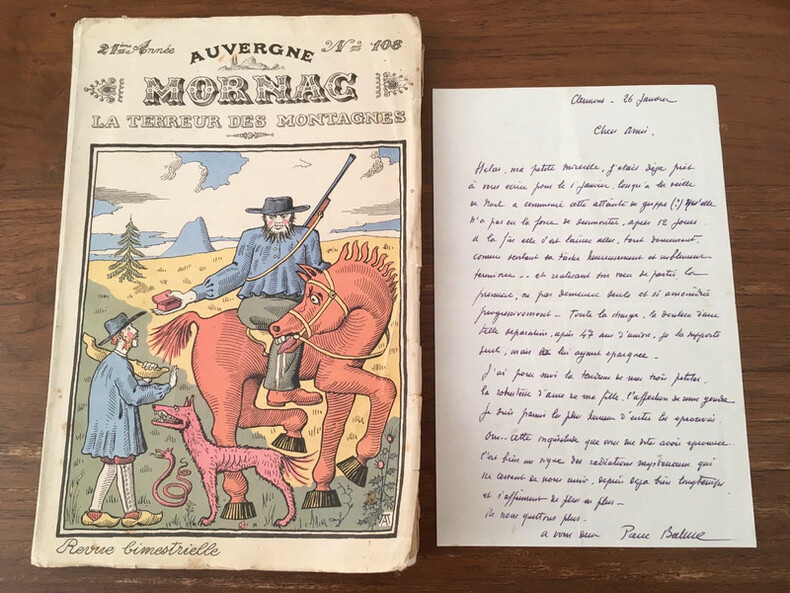 21ème Année
Nº 108
AUVERGNE
MORNAC
LA TERREUR DES MONTAGNES
Revue bimestrielle
Clermont - 26 Janvier
Cher Ami.
Helas, ma petite Mireille, j'etais deja prêt
à vous ecrire pour le 1 Janvier, lorsqu'à la veille
de Noël a commencé cette atteinte de grippe (?) qu'elle
n'a pas eu la force de surmonter, après 12 jours.
A la fin elle s'est laissée aller, tout doucement,
comme sentant sa tache heureusement et noblement
terminée -- et realisant son voeu de partir la
première, ne pas demeurer seule et si amoindrie
progressivement - Toute la charge, la douleur d'une
telle separation, après 47 ans d'union, je la supporte
seul, mais lui ayant epargnée -
J'ai pour moi la tendresse de mes trois petites
la robustesse d'ame de ma fille, l'affection de mon gendre
Je suis parmi les plus heureux d'entre les eprouvés.
Oui - cette inquietude que vous me dites avoir eprouvée
C'est bien un signe des radiations mysterieuses qui
ne cessent de nous unir, depuis deja bien longtemps
et s'affirment de plus en plus -
Ne nous quittons plus.
à vous deux
Pierre Balme